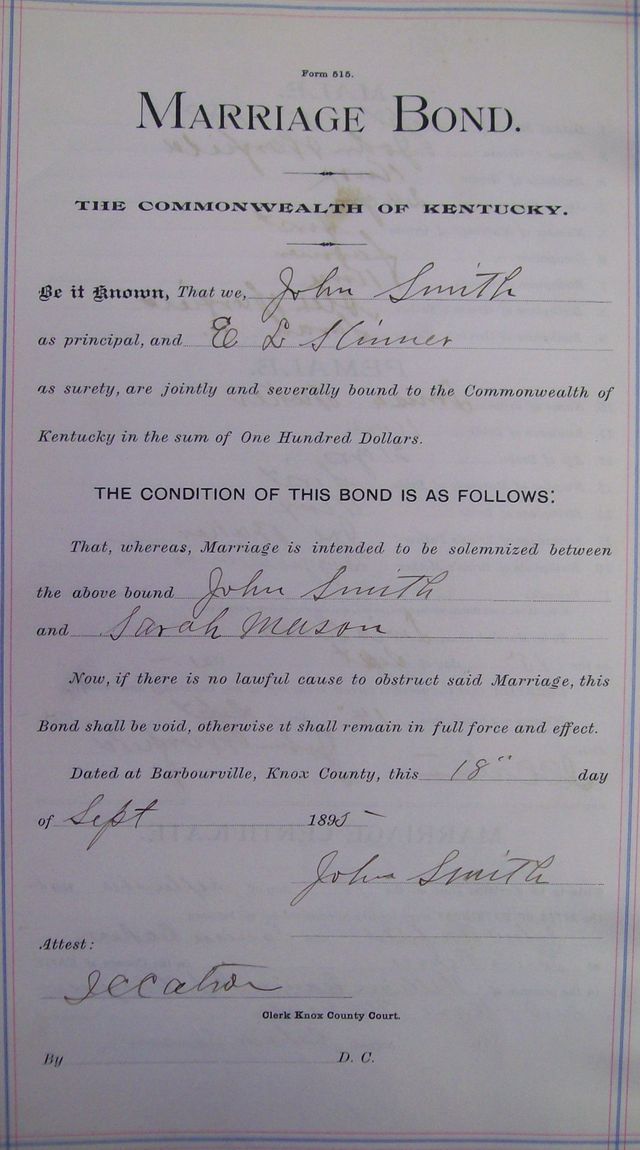 Form 515.
MARRIAGE BOND.
THE COMMONWEALTH OF KENTUCKY.
Be it Known, That we, John Smith
as principal, and E L Skinner
as surety, are jointly and severally bound to the Commonwealth of
Kentucky in the sum of One Hundred Dollars.
THE CONDITION OF THIS BOND IS AS FOLLOWS:
That, whereas, Marriage is intended to be solemnized between
the above bound John Smith
and Sarah Mason
Now, if there is no lawful cause to obstruct said Marriage, this
Bond shall be void, otherwise it shall remain in full force and effect.
Dated at Barbourville, Knox County, this 18" day
of Sept 1895
John Smith
Attest:
Clerk Knox County Court.
By D. C.